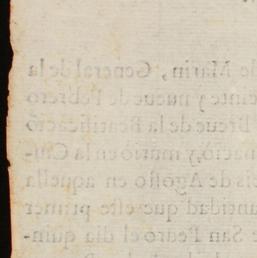 de Marin, General de la
einte y nueue de Febrero
Breue de la Beatificació
nació, y murió en la Ciu-
is de Agosto en aquella
antidad que este primer
e San Pedro el dia quin-